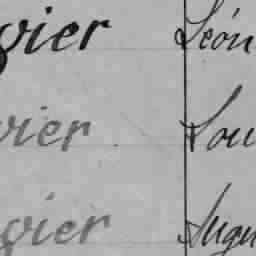 gier Léon
vier Lou
gier Augu